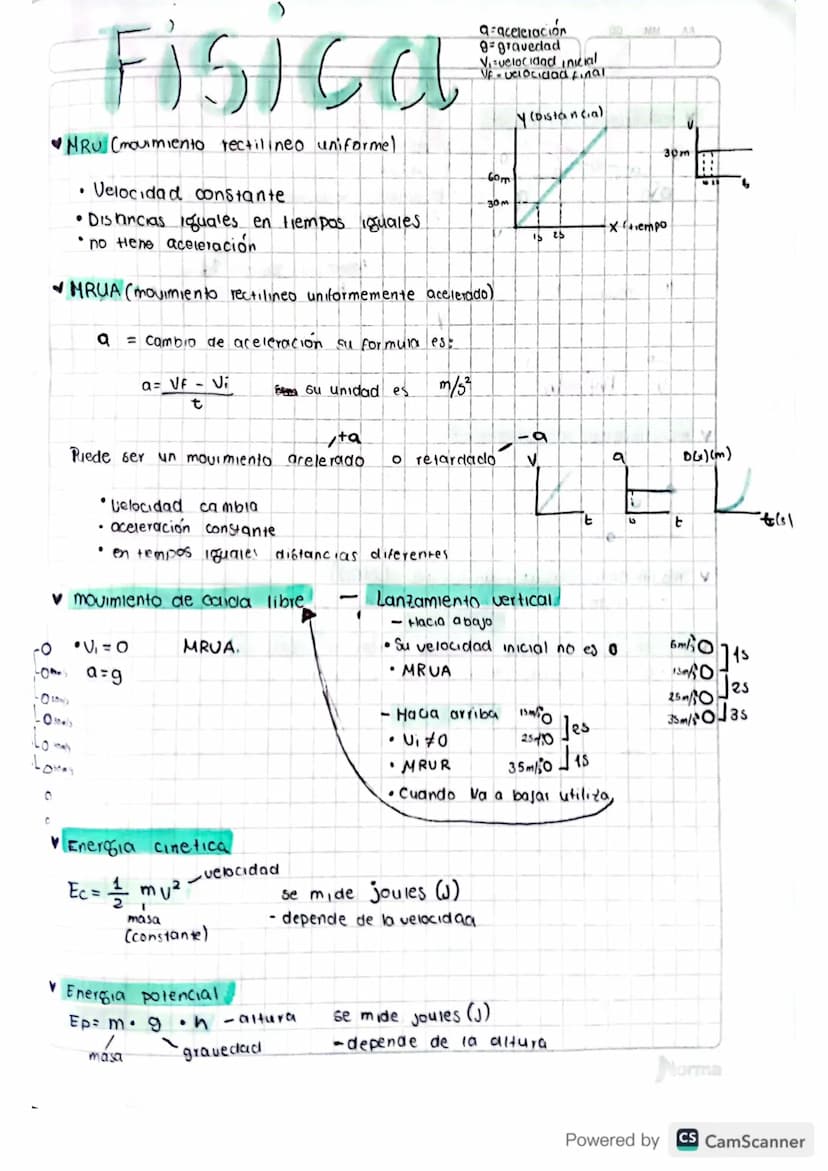 Física
a=aceleración
g=gravedad
Vi=velocidad inicial
VF=velocidad final
DD MM AA
MRU (movimiento rectilineo uniforme)
• Velocidad constante
• Distancias iguales en tiempos iguales
• no tiene aceleración
Y (Distancia)
60m
30m
1s 2s
X (tiempo
V
30m
t
MRUA (movimiento rectilineo uniformemente acelerado)
a = cambio de aceleración su formula es:
a= VF - Vi
t
su unidad es m/s²
,+a
-a
Puede ser un movimiento acelerado o retardado
• velocidad cambia
• aceleración constante
• en tiempos iguales distancias diferentes
V
t
a
t
D(s)(m)
t(s)
movimiento de caida libre
• Vi = 0 MRUA.
a=g
- Lanzamiento vertical
- Hacia abajo
• Su velocidad inicial no es 0
• MRUA
6m/s
15m/s
25m/s
35m/s
1s
2s
3s
- Hacia arriba
• Vi ≠0
• MRUR
15m/s
25m/s
35m/s
1s
• Cuando va a bajar utiliza,
Energia cinetica
Ec= 1/2 mv² velocidad
masa
(constante)
se mide joules (J)
- depende de la velocidad
Energia potencial
Ep= m • g • h - altura
masa
gravedad
se mide joules (J)
- depende de la altura
Norma
Powered by CS CamScanner